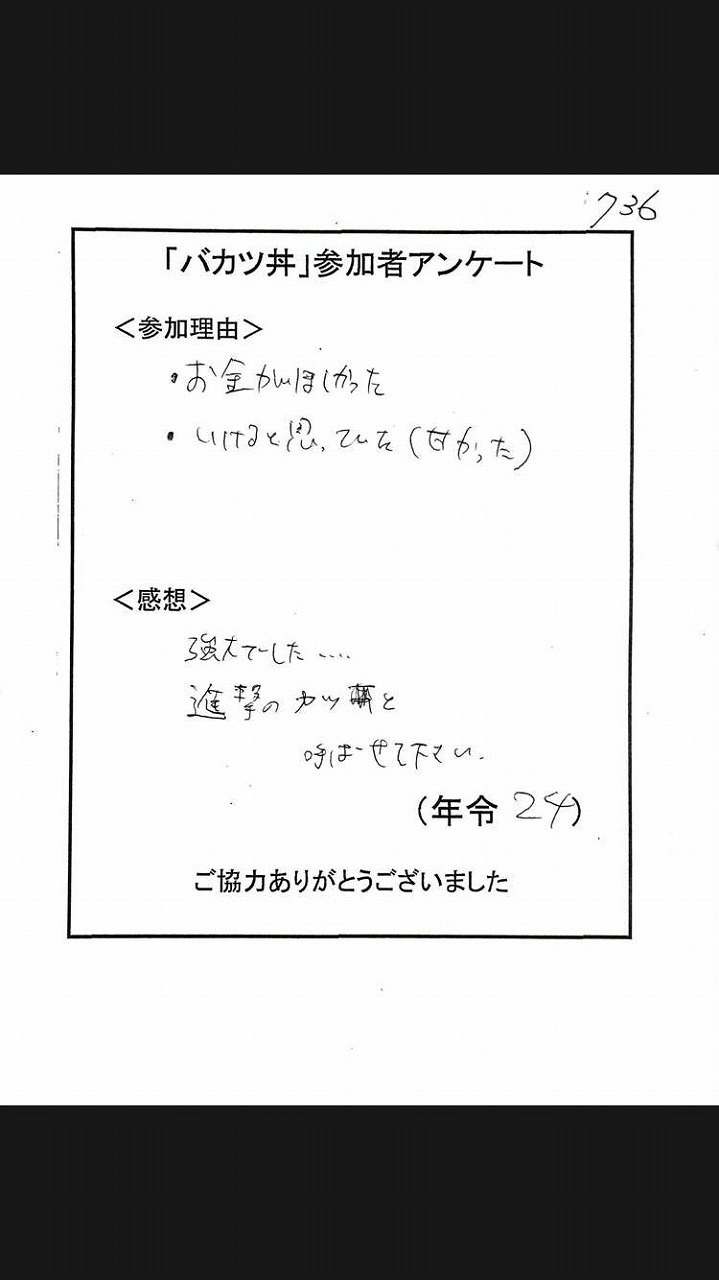 736
「バカツ丼」参加者アンケート
＜参加理由＞
・お金がほしかった
・いけると思っていた(甘かった)
＜感想＞
強大でした....
進撃のカツ丼と
呼ばせて下さい.
(年令 24)
ご協力ありがとうございました